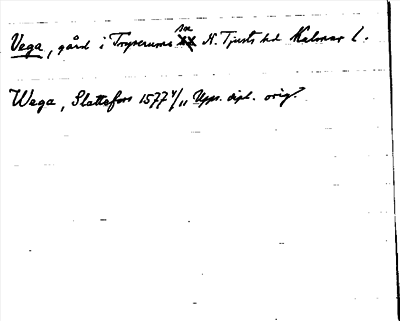 Vega, gård i Tryserums sn N. Tjusts hd Kalmar l.
Wega, Slattefors 1577 4/11 Upps. dipl. orig.